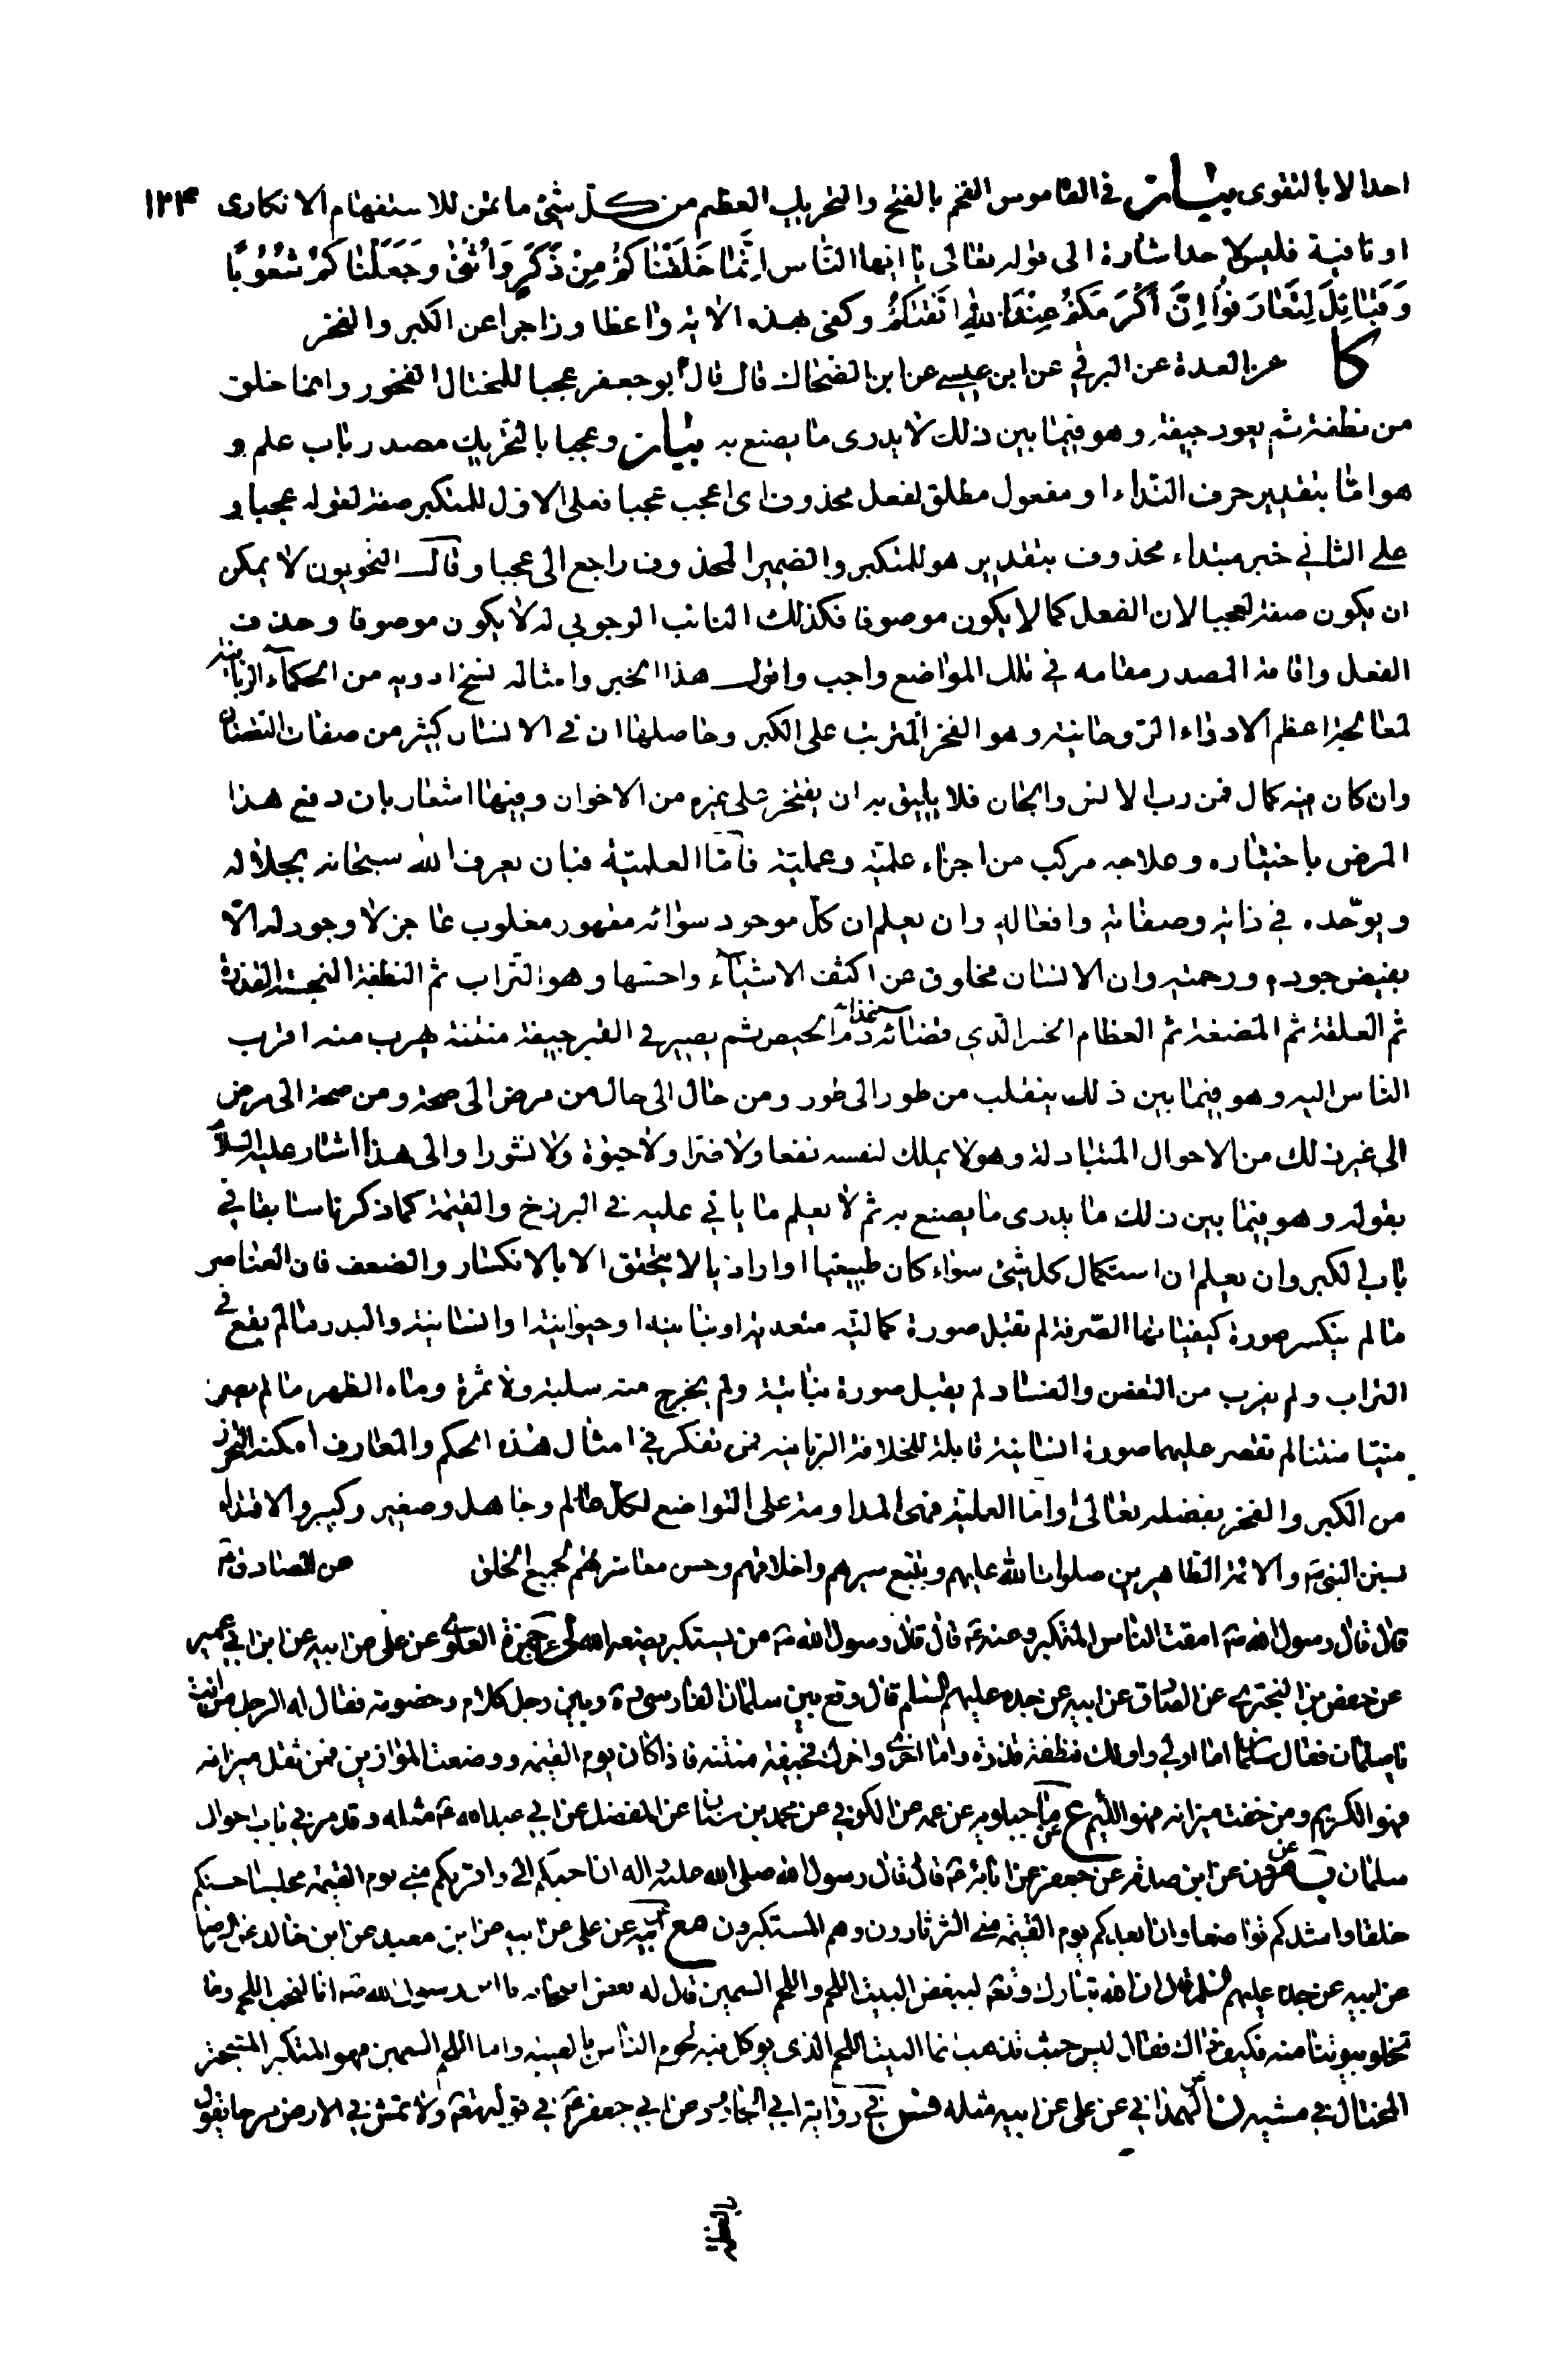 احدا الا بالتقوى بيان في القاموس الفخم بالفتح والتحريك العظم من كل شيء ما نمن للاستفهام الانكارى ١٢٣
او نافية فليس لاحد اشارة الى قوله تعالى يا ايها الناس اِنَّا خَلَقْنَاكُمْ مِنْ ذَكَرٍ وَاُنْثىٰ وَجَعَلْنَاكُمْ شُعُوبًا
وَقَبَائِلَ لِتَعَارَفُوا اِنَّ اَكْرَمَكُمْ عِنْدَ اللهِ اَتْقٰىكُمْ وكفى بهذه الاية واعظا وزاجرا عن الكبر والفخر
كا عن العدة عن البرقي عن ابن عيسى عن ابن الضحاك قال قال ابو جعفر عجبا للمختال الفخور وانما خلق
من نطفة ثم يعود جيفة وهو فيما بين ذلك لا يدرى ما يصنع به بيان وعجبا بالتحريك مصدر باب علم و
هو اما بتقدير حرف النداء او مفعول مطلق لفعل محذوف اى اعجب عجبا فعلى الاول للمتكبر صفة لقوله عجبا و
على الثاني خبر مبتداء محذوف بتقدير هو للمتكبر والضمير المحذوف راجع الى عجبا وقال النحويون لا يمكن
ان يكون صفة لعجبا لان الفعل كما لا يكون موصوفا فكذلك النائب الوجوبي له لا يكون موصوفا وحذف
الفعل واقامة المصدر مقامه في تلك المواضع واجب واقول هذا الخبر وامثاله نسخ ادوية من الحكماء الربانية
لمعالجة اعظم الادواء الروحانية وهو الفخر المترتب على الكبر وحاصلها ان في الانسان كثير من صفات النقصان
وان كان فيه كمال فمن رب الانس والجان فلا يليق به ان يفتخر على غيره من الاخوان وفيها اشعار بان دفع هذا
المرض باختياره وعلاجه مركب من اجزاء علمية وعملية فاما العلمية فبان يعرف الله سبحانه بجلاله
ويوحّده في ذاته وصفاته وافعاله وان يعلم ان كلّ موجود سواه مقهور مغلوب عاجز لا وجود له الّا
بفيض جوده ورحمته وان الانسان مخلوق من اكثف الاشياء واخسها وهو التراب ثم النطفة النجسة القذرة
ثم العلقة ثم المضغة ثم العظام الجنين الذي غذائه دم الحيض ثم يصير في القبر جيفة منتنة يهرب منه اقرب
الناس اليه وهو فيما بين ذلك ينقلب من طور الى طور ومن حال الى حال من مرض الى صحة ومن صحة الى مرض
الى غير ذلك من الاحوال المتبادلة وهو لا يملك لنفسه نفعا ولا ضرا ولا حيوة ولا نشورا والى هذا اشار عليه السلام
بقوله وهو فيما بين ذلك ما يدرى ما يصنع به ثم لا يعلم ما ياتي عليه في البرزخ والقيمة كما ذكرنا سابقا في
باب الكبر وان يعلم ان استكمال كل شيء سواء كان طبيعيا او اراديا لا يتحقق الا بالانكسار والضعف فان العناصر
ما لم ينكسر صورة كيفياتها الصرفة لم تقبل صورة كمالية معدنية او نباتية او حيوانية او انسانية والبذر ما لم يقع في
التراب ولم يقرب من التعفن والفساد لم يقبل صورة نباتية ولم يخرج منه سنبلة ولا ثمرة وماء الظهر ما لم يصر
منيّا منتنا لم تفض عليها صورة انسانية قابلة للخلافة الربانية فمن تفكر في امثال هذه الحكم والمعارف امكنه التحرز
من الكبر والفخر بفضله تعالى واما العملية فهى المداومة على التواضع لكل عالم وجاهل وصغير وكبير والاقتداء
بسنن النبي ص والائمة الطاهرين صلوات الله عليهم ويتبع سيرهم واخلاقهم وحسن معاشرتهم لجميع الخلق عن الصادق ع
قال قال رسول الله ص امقت الناس المتكبر وعنه ع قال قال رسول الله ص من يستكبر يضعه الله حمزة العلوى عن على عن ابيه عن ابن ابي عمير
عن حفص بن البختري عن الصادق عن ابيه عن جده عليهم السلم قال وقع بين سلمان الفارسى ره وبين رجل كلام وخصومة فقال له الرجل من انت
يا سلمان فقال سلمان اما اولي واولك فنطفة قذرة واما اخرى واخرك فجيفة منتنة فاذا كان يوم القيمة ووضعت الموازين فمن ثقل ميزانه
فهو الكريم ومن خفت ميزانه فهو اللئيم ع ماجيلويه عن عمه عن الكوفي عن محمد بن سنان عن المفضل عن ابي عبد الله ع مثله وقد مر في باب احوال
سلمان عن هرون عن ابن صدقة عن جعفر عن ابائه ع قال قال رسول الله صلى الله عليه واله ان احبكم الى واقربكم منى يوم القيمة مجلسا احسنكم
خلقا واشدكم تواضعا وان ابعدكم يوم القيمة مني الثرثارون وهم المستكبرون مع ابيه عن على عن ابيه عن ابن معبد عن ابن خالد عن الرضا
عن ابيه عن جده عليهم السلم قال ان الله تبارك وتعالى ليبغض البيت اللحم واللحم السمين قال له بعض اصحابه يا ابن رسول الله ص انا لنحب اللحم وما
تخلو بيوتنا منه فكيف ذاك فقال ليس حيث تذهب انما البيت اللحم الذي يوكل فيه لحوم الناس بالغيبة واما اللحم السمين فهو المتكبر المتبختر
المختال في مشيه ن الهمذاني عن على عن ابيه مثله فس في رواية ابي الجارود عن ابي جعفر ع في قوله تعالى ولا تمش في الارض مرحا يقول
بالعظمة